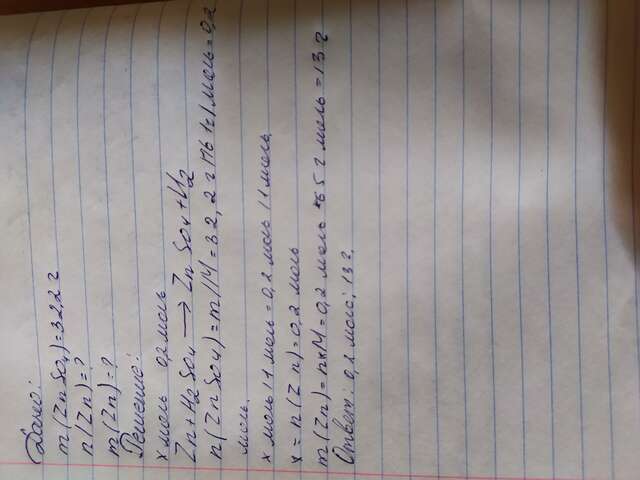 Дано:
m(ZnSO4)=32,2г
n(Zn)=?
m(Zn)=?
Решение:
x моль 0,2 моль
Zn+H2SO4 → ZnSO4+H2
n(ZnSO4)=m/M=32,2г/161г/моль=0,2
моль.
x моль/1 моль=0,2 моль/1 моль,
x=n(Zn)=0,2 моль
m(Zn)=n*M=0,2 моль*65 г моль=13г
Ответ: 0,2 моль; 13г.